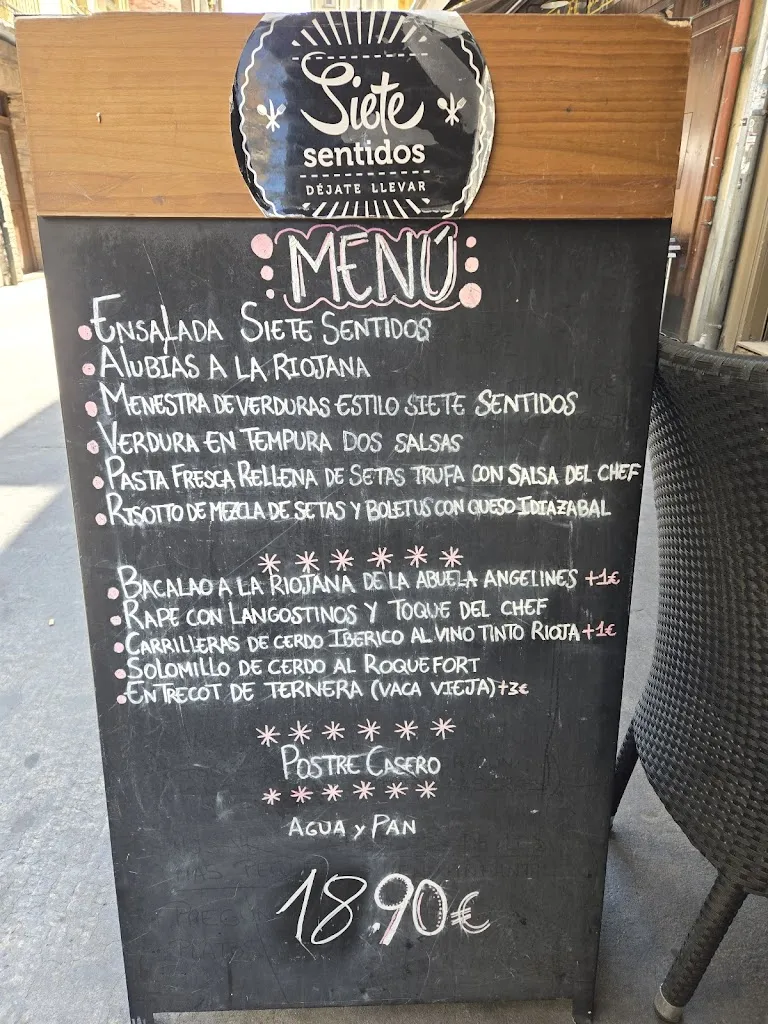 Siete
sentidos
DÉJATE LLEVAR
MENÚ
ENSALADA SIETE SENTIDOS
ALUBIAS A LA RIOJANA
MENESTRA DE VERDURAS ESTILO SIETE SENTIDOS
VERDURA EN TEMPURA DOS SALSAS
PASTA FRESCA RELLENA DE SETAS TRUFA CON SALSA DEL CHEF
RISOTTO DE MEZCLA DE SETAS Y BOLETUS CON QUESO IDIAZABAL
BACALAO A LA RIOJANA DE LA ABUELA ANGELINES +1€
RAPE CON LANGOSTINOS Y TOQUE DEL CHEF
CARRILLERAS DE CERDO IBERICO AL VINO TINTO RIOJA +1€
SOLOMILLO DE CERDO AL ROQUEFORT
ENTRECOT DE TERNERA (VACA VIEJA) +3€
POSTRE CASERO
AGUA y PAN
18.90€